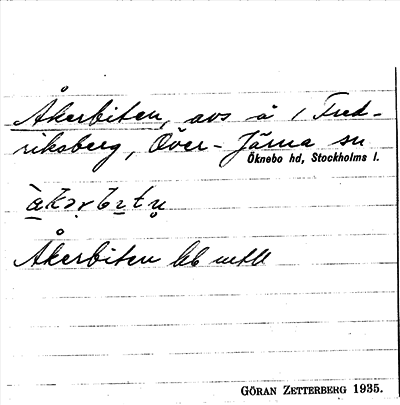 Åkerbiten, avs å 1 Fred-
riksberg, Över-Järna sn
Öknebo hd, Stockholms l.
Åkerbiten
GÖRAN ZETTERBERG 1935.